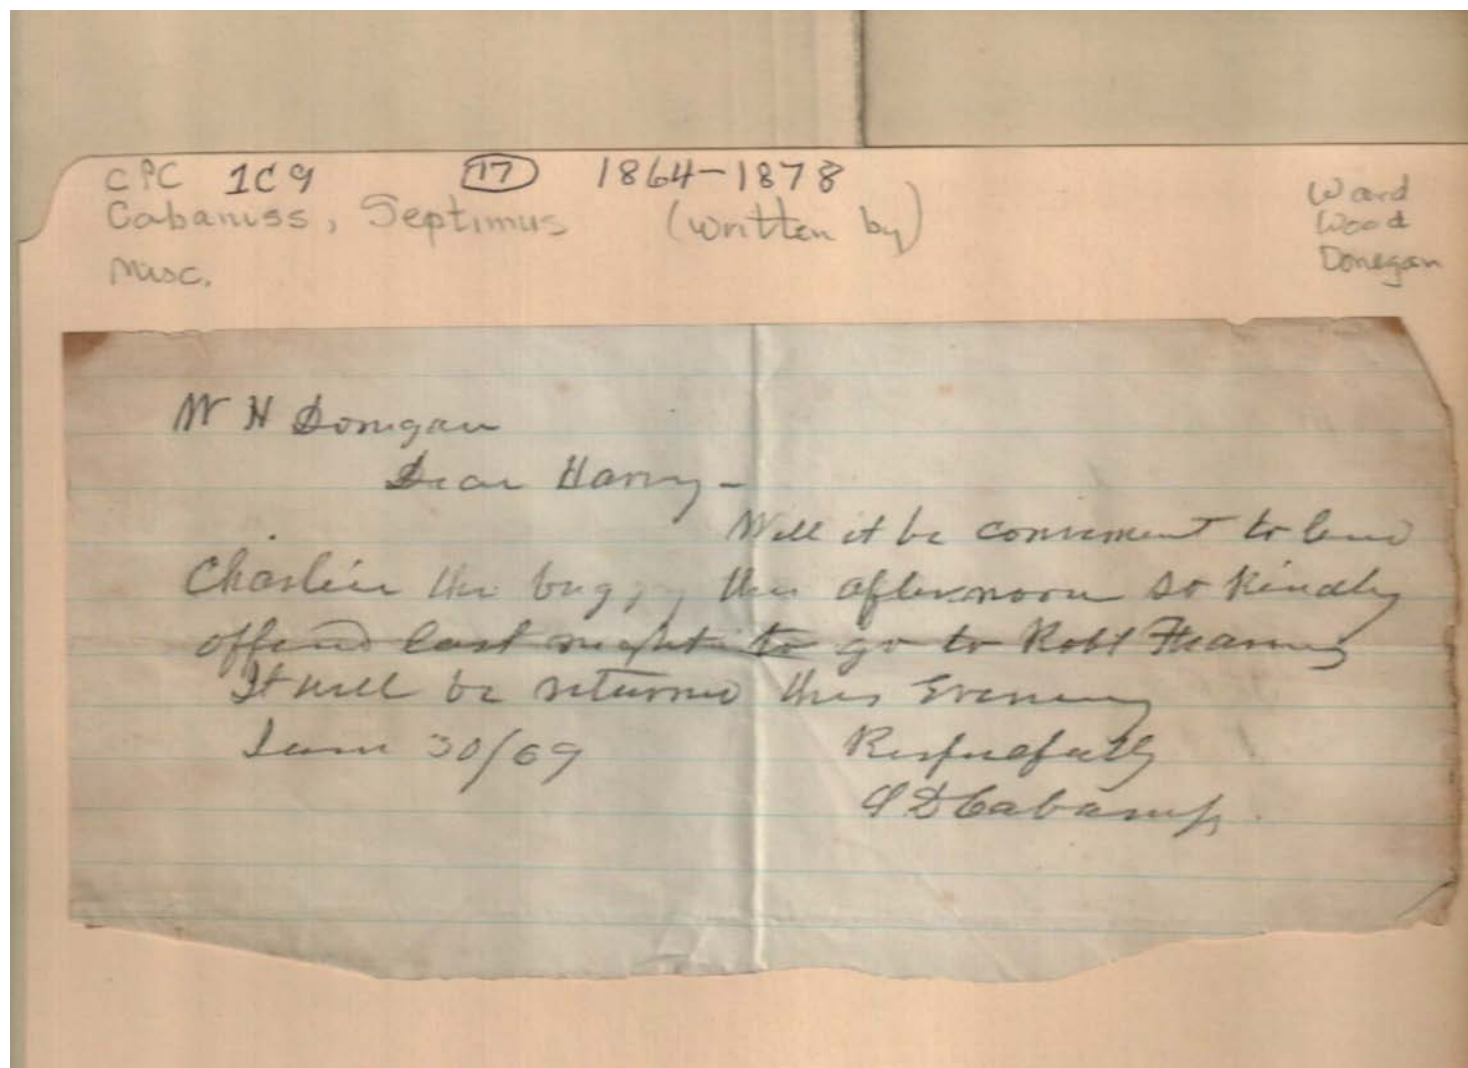 CPC 1C9 17 1864-1878
Cabaniss, Septimus (written by)
Misc.
Ward
Wood
Donegan
W H Donegan
Dear Harvey -
Will it be convenient to lend
Charlie the buggy this afternoon so kindly
offered last night to go to Robt Fearns
It will be returned this Evening
June 30/69
Respectfully
S D Cabaniss